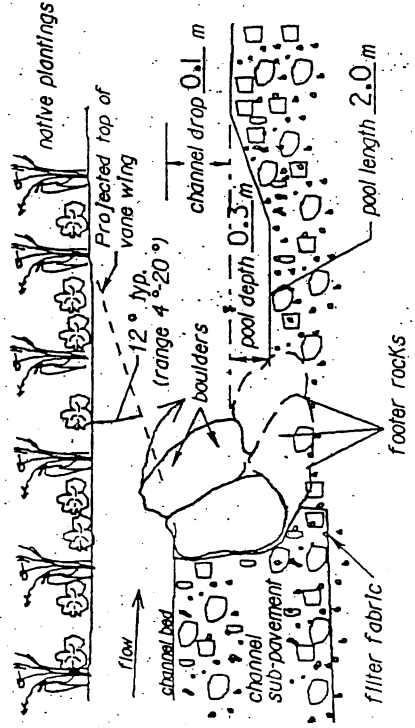 native plantings
Projected top of
vane wing
12° typ.
(range 4°-20°)
boulders
channel drop 0.1 m
pool depth 0.3 m
pool length 2.0 m
flow
channel bed
channel
sub-pavement
footer rocks
filter fabric